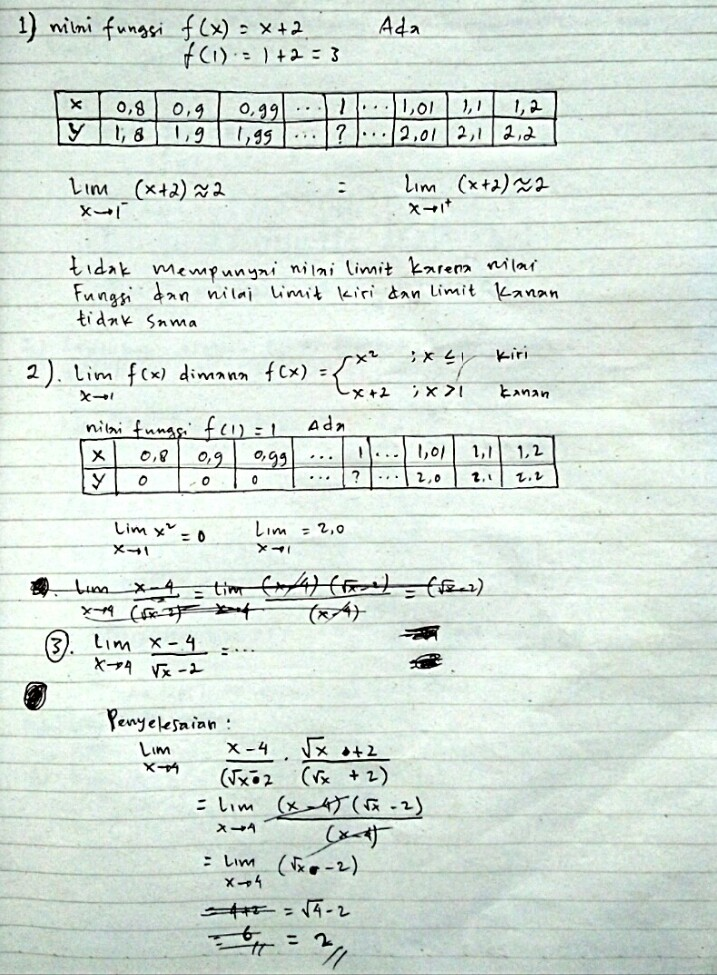 1) nilai fungsi f(x) = x+2 Ada
f(1) = 1+2 = 3
x | 0,8 | 0,9 | 0,99 | ... | 1 | ... | 1,01 | 1,1 | 1,2
y | 1,8 | 1,9 | 1,99 | ... | ? | ... | 2,01 | 2,1 | 2,2
Lim (x+2) ≈ 2 = Lim (x+2) ≈ 2
x→1⁻ x→1⁺
tidak mempunyai nilai limit karena nilai
Fungsi dan nilai limit kiri dan limit kanan
tidak sama
2). Lim f(x) dimana f(x) = { x² ; x ≤ 1 kiri
x→1 x+2 ; x > 1 kanan
nilai fungsi f(1) = 1 Ada
x | 0,8 | 0,9 | 0,99 | ... | 1 | ... | 1,01 | 1,1 | 1,2
y | 0 | 0 | 0 | ... | ? | ... | 2,0 | 2.1 | 2.2
Lim x² = 0 Lim = 2,0
x→1 x→1
Lim x-4 = Lim (x-4) (√x-2) = (√x-2)
x→4 (√x-2) x→4 (x-4)
3. Lim x-4 = ...
x→4 √x-2
Penyelesaian :
Lim x-4 . √x +2
x→4 (√x-2 (√x +2)
= Lim (x-4) (√x -2)
x→4 (x-4)
= Lim (√x -2)
x→4
= 4+2 = √4-2
= 6 = 2